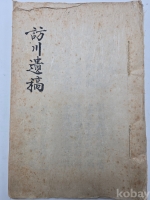 訪川遺稿
kobay